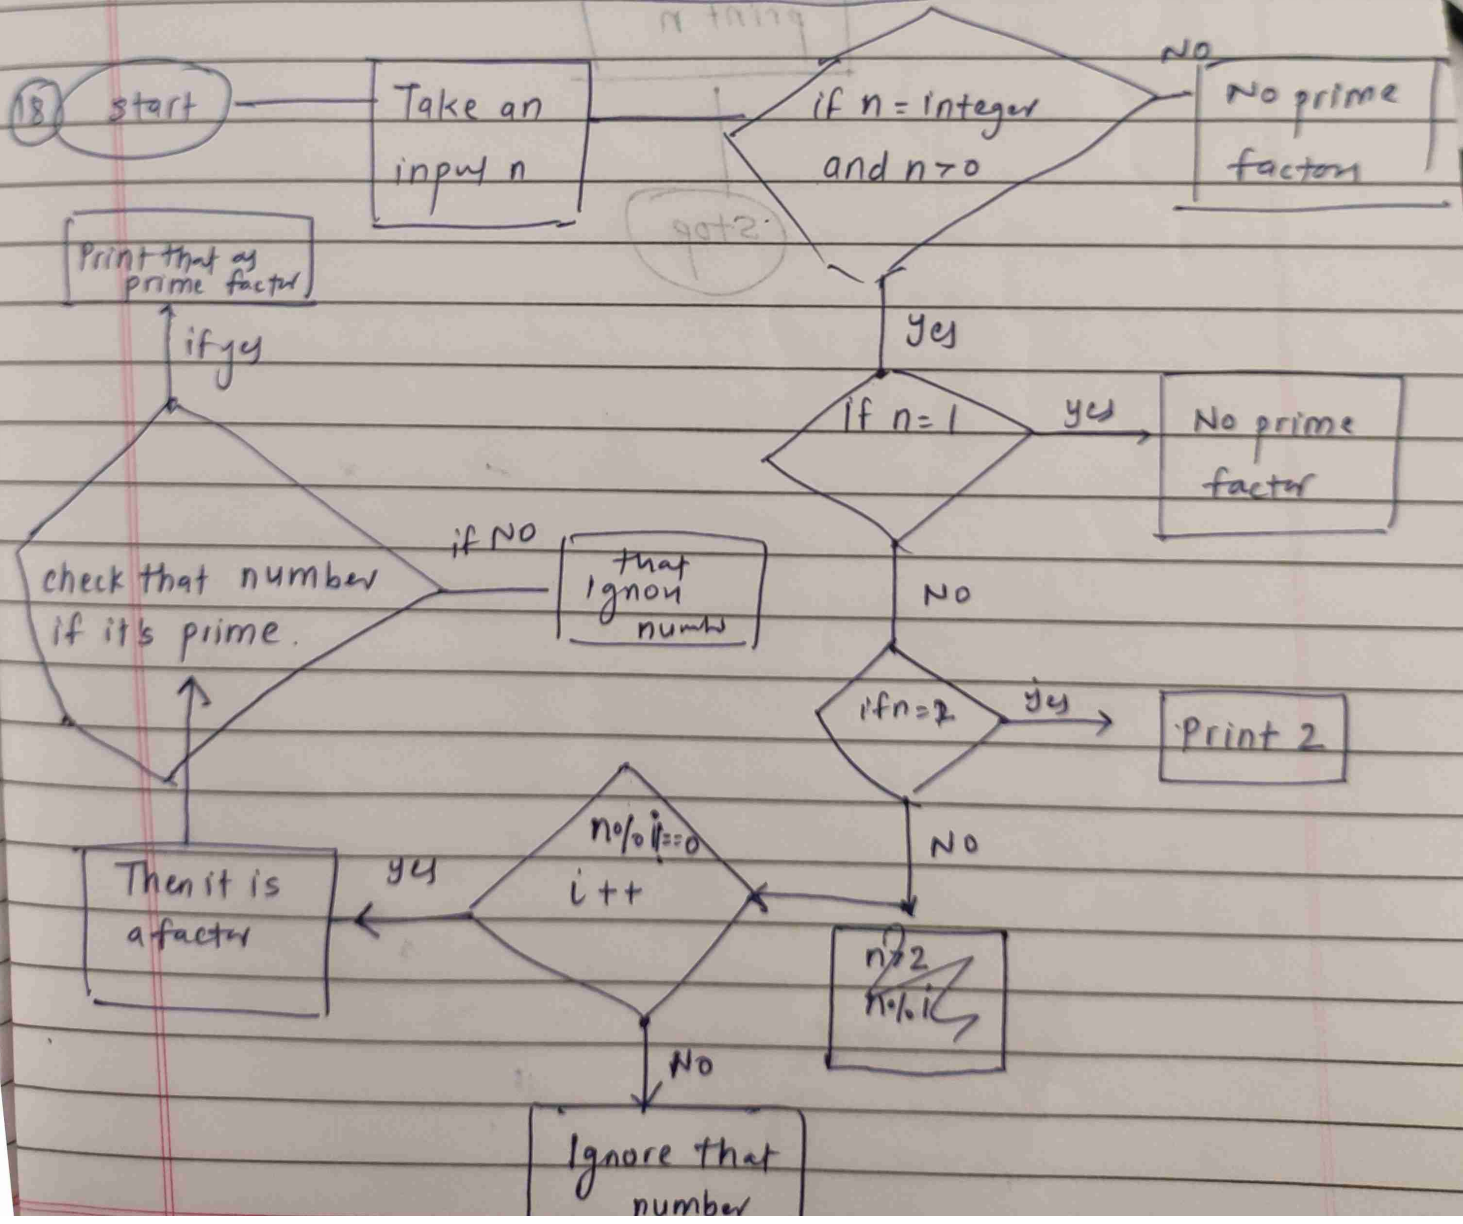 18
start
Take an
input n
if n = integer
and n>0
NO
No prime
factors
Print that as
prime factor
if yes
yes
if n = 1
yes
No prime
factor
check that number
if it's prime.
if NO
that
Ignore
number
NO
if n = 2
yes
Print 2
NO
n%i==0
i ++
yes
Then it is
a factor
n>2
n%i
NO
Ignore that
number
print n
stop